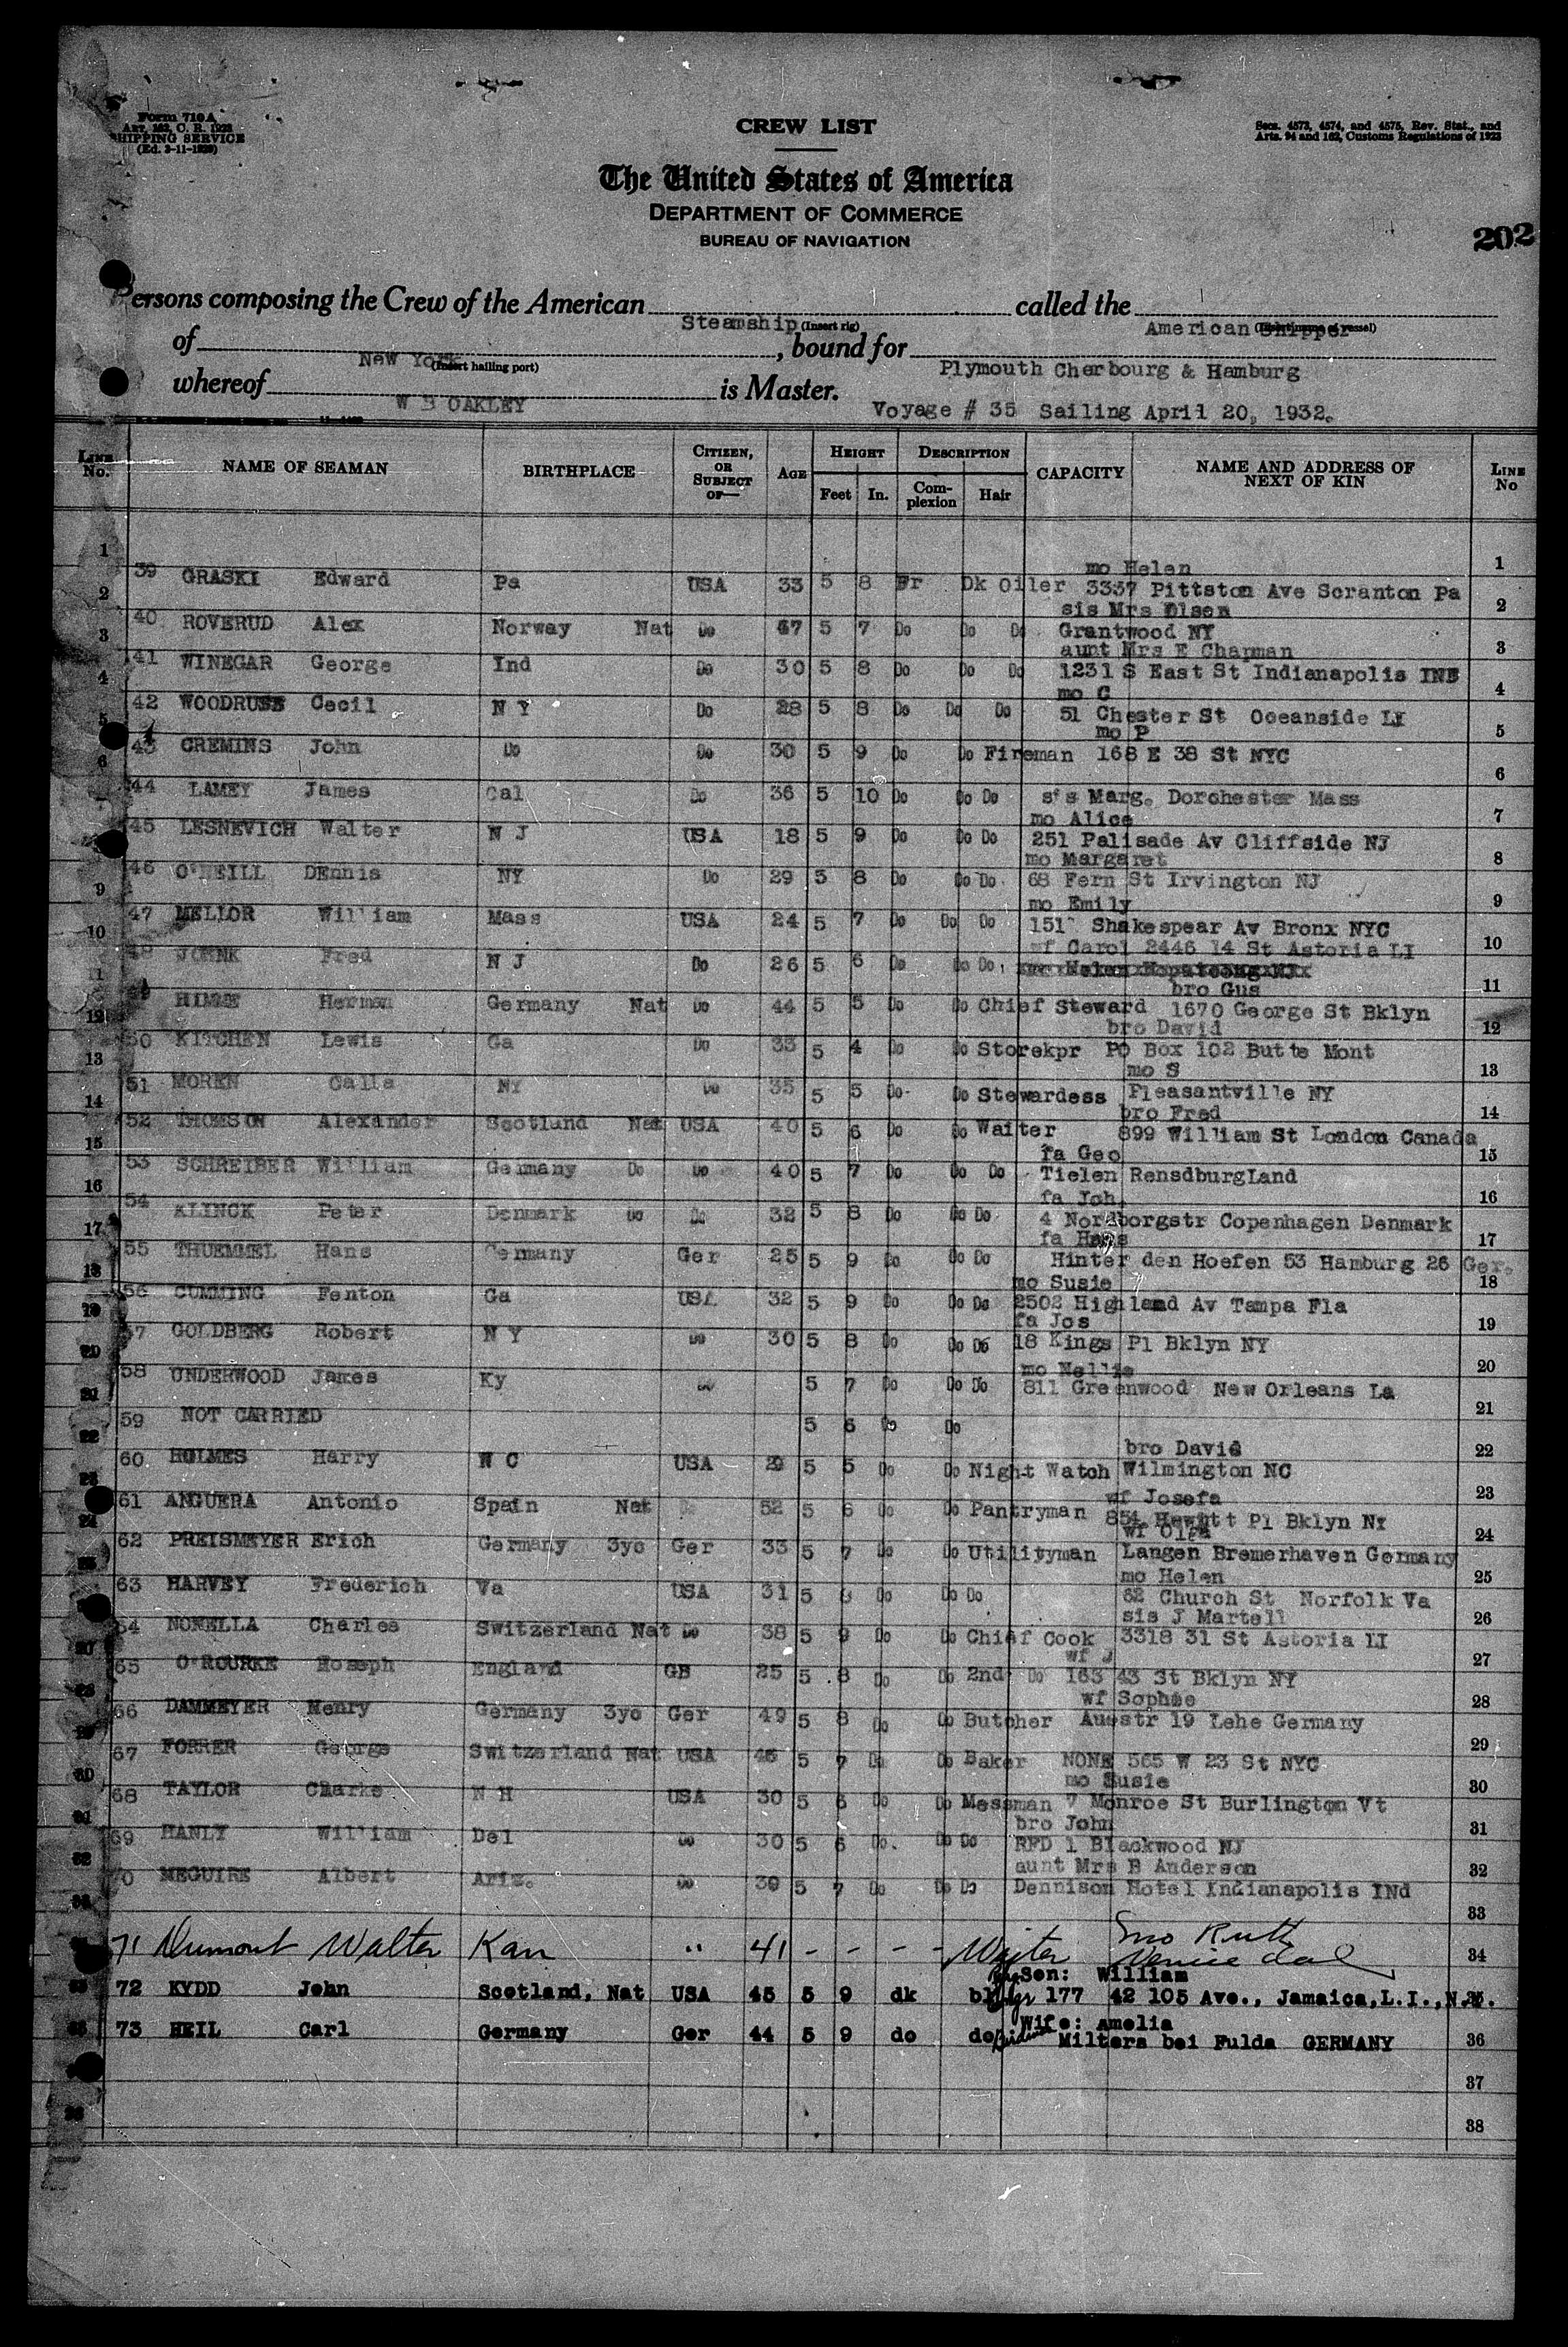 Form 710A
ART. 162, C. R. 1923
SHIPPING SERVICE
(Ed. 3-11-1929)
CREW LIST
Secs. 4573, 4574, and 4575, Rev. Stat., and
Arts. 94 and 162, Customs Regulations of 1923
The United States of America
DEPARTMENT OF COMMERCE
BUREAU OF NAVIGATION
202
Persons composing the Crew of the American Steamship (Insert rig) called the American Shipper
of New York (Insert hailing port), bound for Plymouth Cherbourg & Hamburg
whereof W B OAKLEY is Master.
Voyage # 35 Sailing April 20, 1932.
LINE No. NAME OF SEAMAN BIRTHPLACE CITIZEN, OR SUBJECT OF— AGE HEIGHT Feet In. DESCRIPTION Complexion Hair CAPACITY NAME AND ADDRESS OF NEXT OF KIN LINE No
1 1
mo Helen
39 GRASKI Edward Pa USA 33 5 8 Fr Dk Oiler 3337 Pittston Ave Scranton Pa
2 2
sis Mrs Olsen
40 ROVERUD Alex Norway Nat Do 47 5 7 Do Do Do Grantwood NY
3 3
aunt Mrs E Chapman
41 WINEGAR George Ind Do 30 5 8 Do Do Do 1231 S East St Indianapolis IND
4 4
mo C
42 WOODRUSS Cecil N Y Do 28 5 8 Do Do Do 51 Chester St Oceanside LI
5 5
mo P
43 CREMINS John Do Do 30 5 9 Do Do Fireman 168 E 38 St NYC
6 6
44 LAMEY James Cal Do 36 5 10 Do Do Do sis Marg. Dorchester Mass
7 7
mo Alice
45 LESNEVICH Walter N J USA 18 5 9 Do Do Do 251 Palisade Av Cliffside NJ
8 8
mo Margaret
46 O'NEILL DEnnis NY Do 29 5 8 Do Do Do 68 Fern St Irvington NJ
9 9
mo Emily
47 MELLOR William Mass USA 24 5 7 Do Do Do Shakespear Av Bronx NYC
10 10
wf Carol 2446 14 St Astoria LI
48 JOHNK Fred N J Do 26 5 6 Do Do Do
11 11
bro Gus
HIMME Herman Germany Nat Do 44 5 5 Do Do Chief Steward 1670 George St Bklyn
12 12
bro David
50 KITCHEN Lewis Ga Do 33 5 4 Do Do Storekpr PO Box 102 Butte Mont
13 13
mo S
51 MOREN Calla NY Do 35 5 5 Do Do Stewardess Pleasantville NY
14 14
bro Fred
52 THOMSON Alexander Scotland Nat USA 40 5 6 Do Do Waiter 899 William St London Canada
15 15
fa Geo
53 SCHREIBER William Germany Do Do 40 5 7 Do Do Do Tielen RensdburgLand
16 16
fa Joh.
54 KLINCK Peter Denmark Do Do 32 5 8 Do Do Do 4 Nordborgstr Copenhagen Denmark
17 17
fa Hans
55 THUEMMEL Hans Germany Ger 25 5 9 Do Do Do Hinter den Hoefen 53 Hamburg 26 Ger.
18 18
mo Susie
56 CUMMING Fenton Ga USA 32 5 9 Do Do Do 2502 Highland Av Tampa Fla
19 19
fa Jos
57 GOLDBERG Robert N Y Do 30 5 8 Do Do Do 18 Kings Pl Bklyn NY
20 20
mo Nellie
58 UNDERWOOD James Ky Do 5 7 Do Do Do 811 Greenwood New Orleans La
21 21
59 NOT CARRIED 5 6 Do Do
22 22
bro David
60 HOLMES Harry N C USA 29 5 5 Do Do Night Watch Wilmington NC
23 23
wf Josefa
61 ANGUERA Antonio Spain Nat Do 52 5 6 Do Do Pantryman 854 Hewitt Pl Bklyn NY
24 24
wf Olga
62 PREISMEYER Erich Germany 3yc Ger 33 5 7 Do Do Utilityman Langen Bremerhaven Germany
25 25
mo Helen
63 HARVEY Frederich Va USA 31 5 8 Do Do Do 62 Church St Norfolk Va
26 26
sis J Martell
64 NONELLA Charles Switzerland Nat Do 38 5 9 Do Do Chief Cook 3318 31 St Astoria LI
27 27
wf J
65 O'ROURKE Hoseph England GB 25 5 8 Do Do 2nd Do 163 43 St Bklyn NY
28 28
wf Sophie
66 DAMMEYER Henry Germany 3yc Ger 49 5 8 Do Do Butcher Auestr 19 Lehe Germany
29 29
67 FORRER George Switzerland Nat USA 46 5 7 Do Do Baker NONE 565 W 23 St NYC
30 30
mo Susie
68 TAYLOR Charke N H USA 30 5 6 Do Do Messman 7 Monroe St Burlington Vt
31 31
bro John
69 HANLY William Del Do 30 5 6 Do. Do Do RFD 1 Blackwood NJ
32 32
aunt Mrs B Anderson
70 MEGUIRE Albert Ariz. Do 39 5 7 Do Do Do Dennison Hotel Indianapolis INd
33 33
mo Ruth
71 Dumont Walter Kan " 41 - - - - Waiter Venice Cal
34
Son: William
72 KYDD John Scotland, Nat USA 45 5 9 dk 177 42 105 Ave., Jamaica, L.I., N.Y.
35
Wife: Amelia
73 HEIL Carl Germany Ger 44 5 9 do do Milters bei Fulda GERMANY
36
37
38